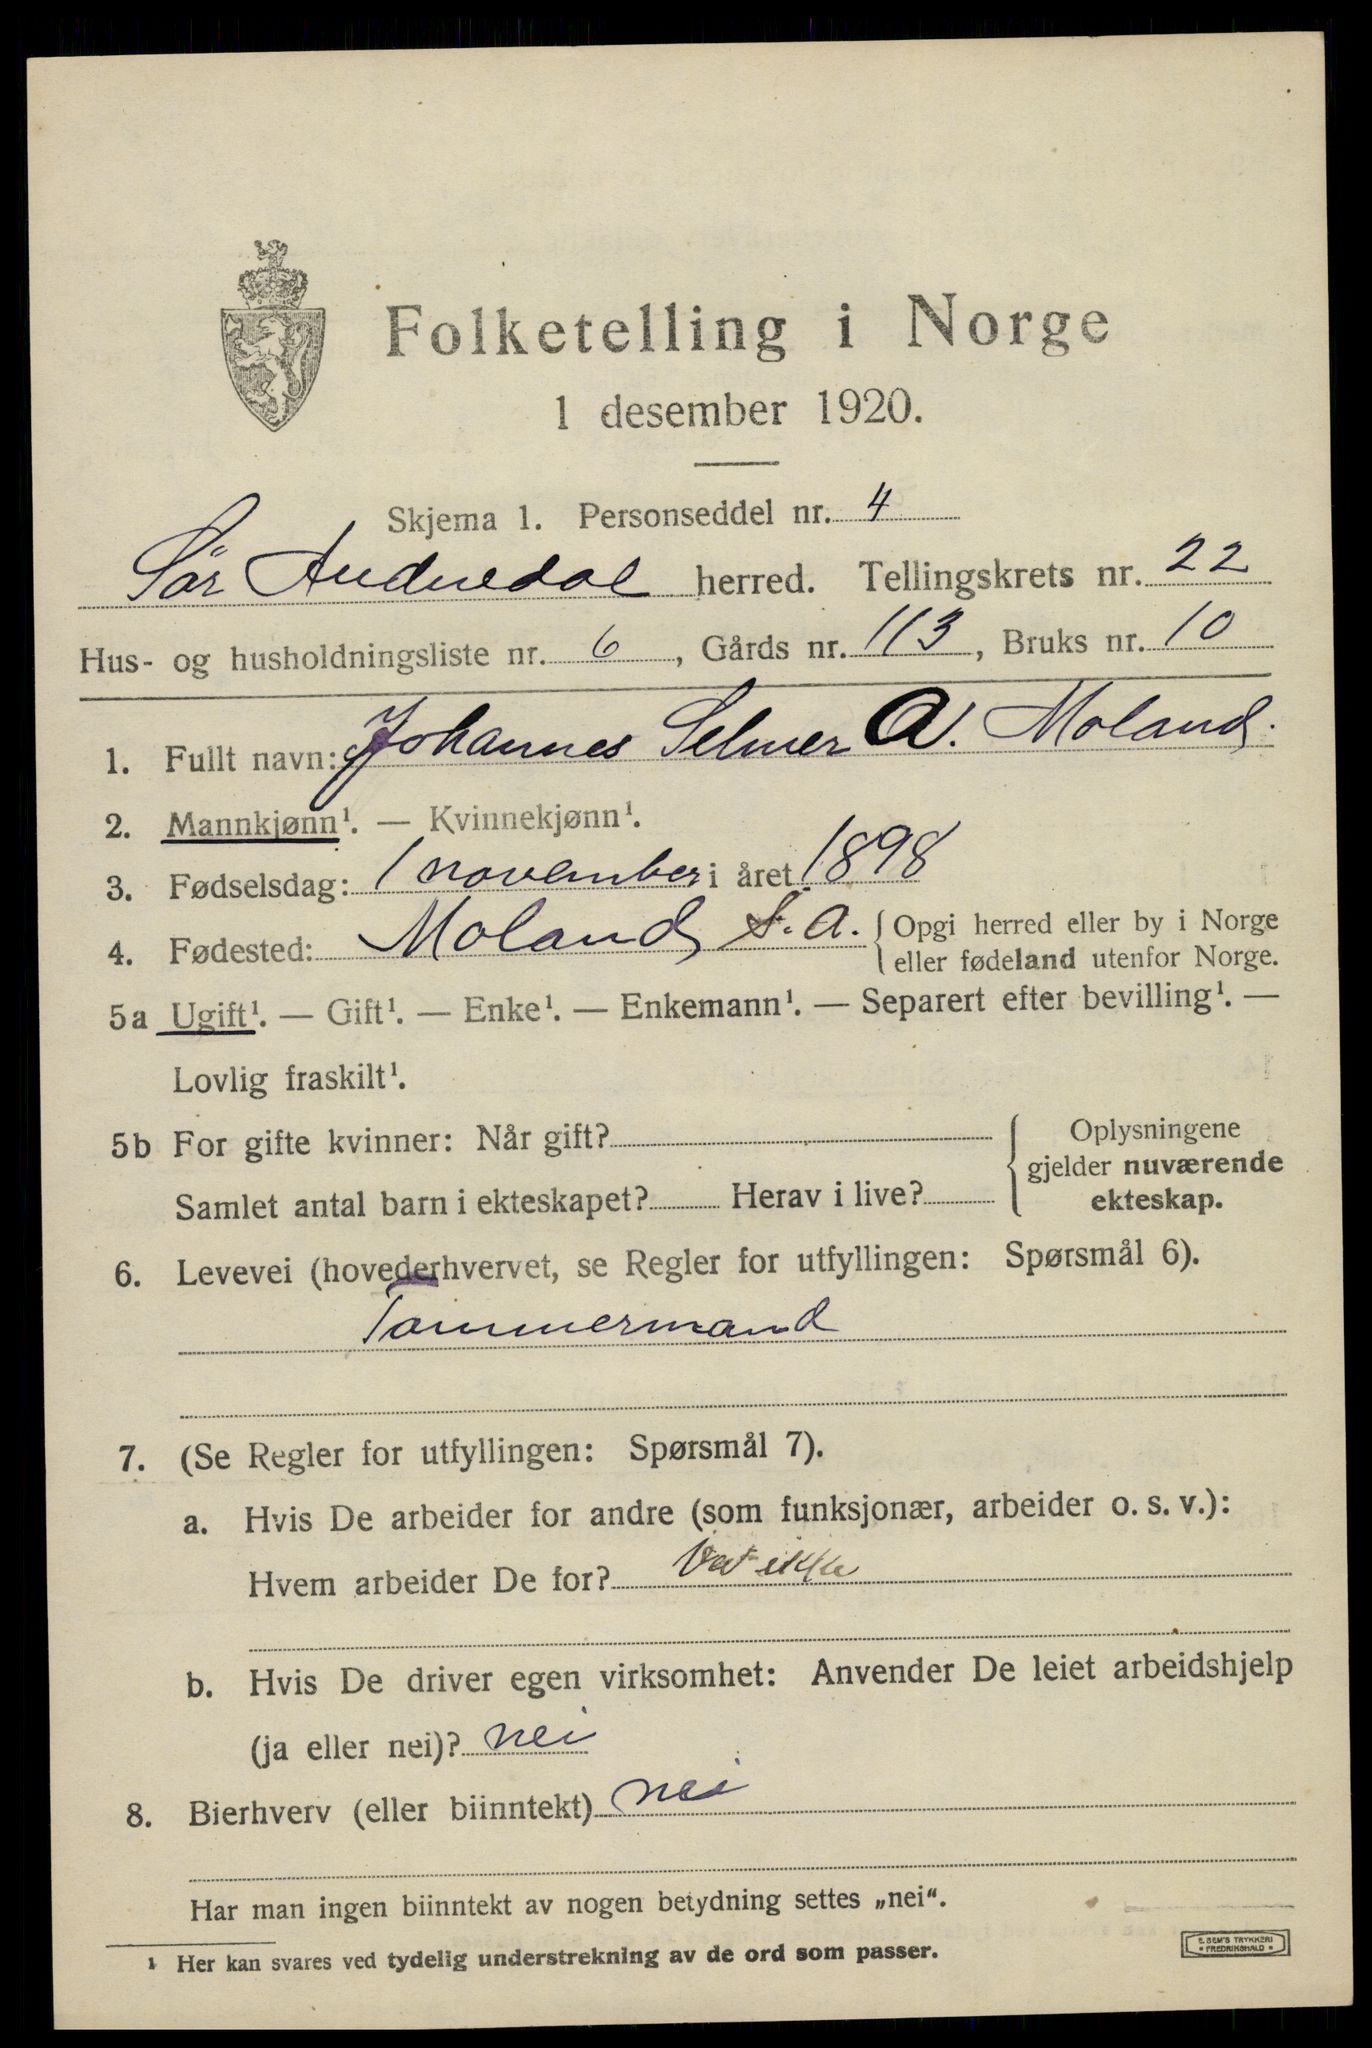 Folketelling i Norge
1 desember 1920.
Skjema 1. Personseddel nr. 4
Sør Audnedal herred. Tellingskrets nr. 22
Hus- og husholdningsliste nr. 6, Gårds nr. 113, Bruks nr. 10
1. Fullt navn: Johannes Selmer A. Moland.
2. Mannkjønn¹. — Kvinnekjønn¹.
3. Fødselsdag: 1 november i året 1898
4. Fødested: Moland S. A. { Opgi herred eller by i Norge
eller fødeland utenfor Norge.
5a Ugift¹. — Gift¹. — Enke¹. — Enkemann¹. — Separert efter bevilling¹. —
Lovlig fraskilt¹.
5b For gifte kvinner: Når gift? { Oplysningene
gjelder nuværende
Samlet antal barn i ekteskapet? Herav i live? ekteskap.
6. Levevei (hovederhvervet, se Regler for utfyllingen: Spørsmål 6).
Tømmermand
7. (Se Regler for utfyllingen: Spørsmål 7).
a. Hvis De arbeider for andre (som funksjonær, arbeider o. s. v.):
Hvem arbeider De for? Vet ikke
b. Hvis De driver egen virksomhet: Anvender De leiet arbeidshjelp
(ja eller nei)? nei
8. Bierhverv (eller biinntekt) nei
Har man ingen biinntekt av nogen betydning settes „nei“.
¹ Her kan svares ved tydelig understrekning av de ord som passer.
E. SEM'S TRYKKERI
FREDRIKSHALD